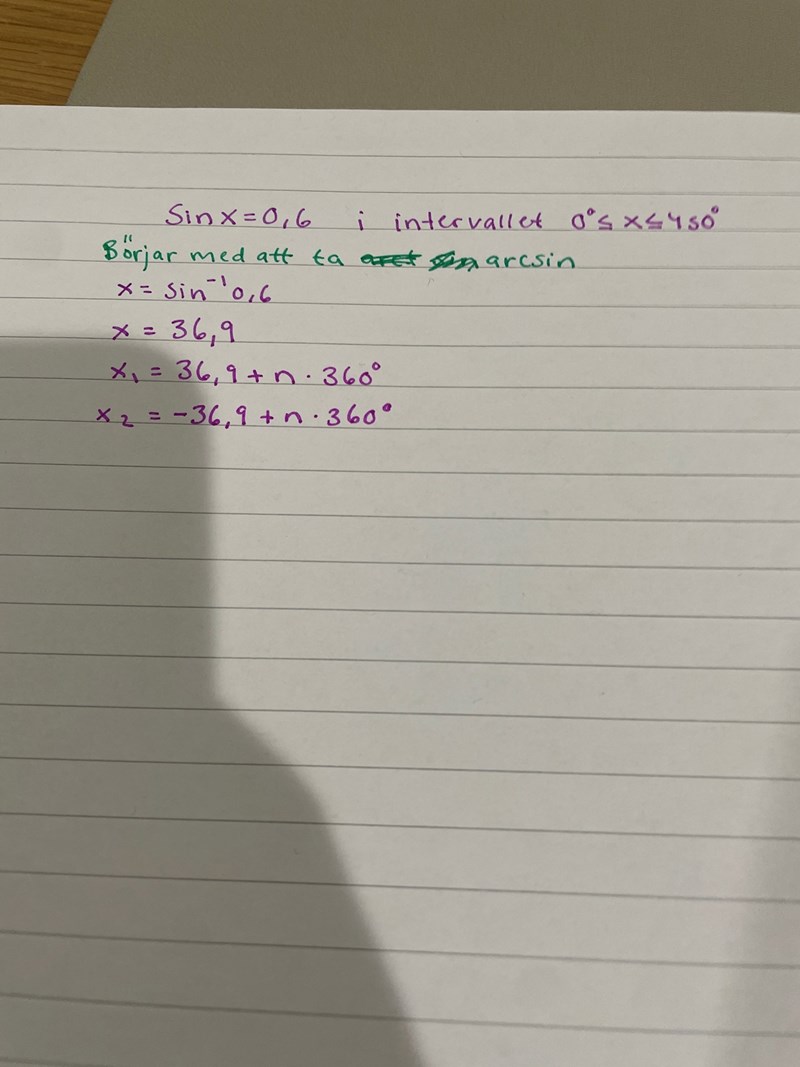 Sin x = 0,6 i intervallet 0° ≤ x ≤ 450°
Börjar med att ta arcsin
x = sin⁻¹ 0,6
x = 36,9
x₁ = 36,9 + n · 360°
x₂ = -36,9 + n · 360°